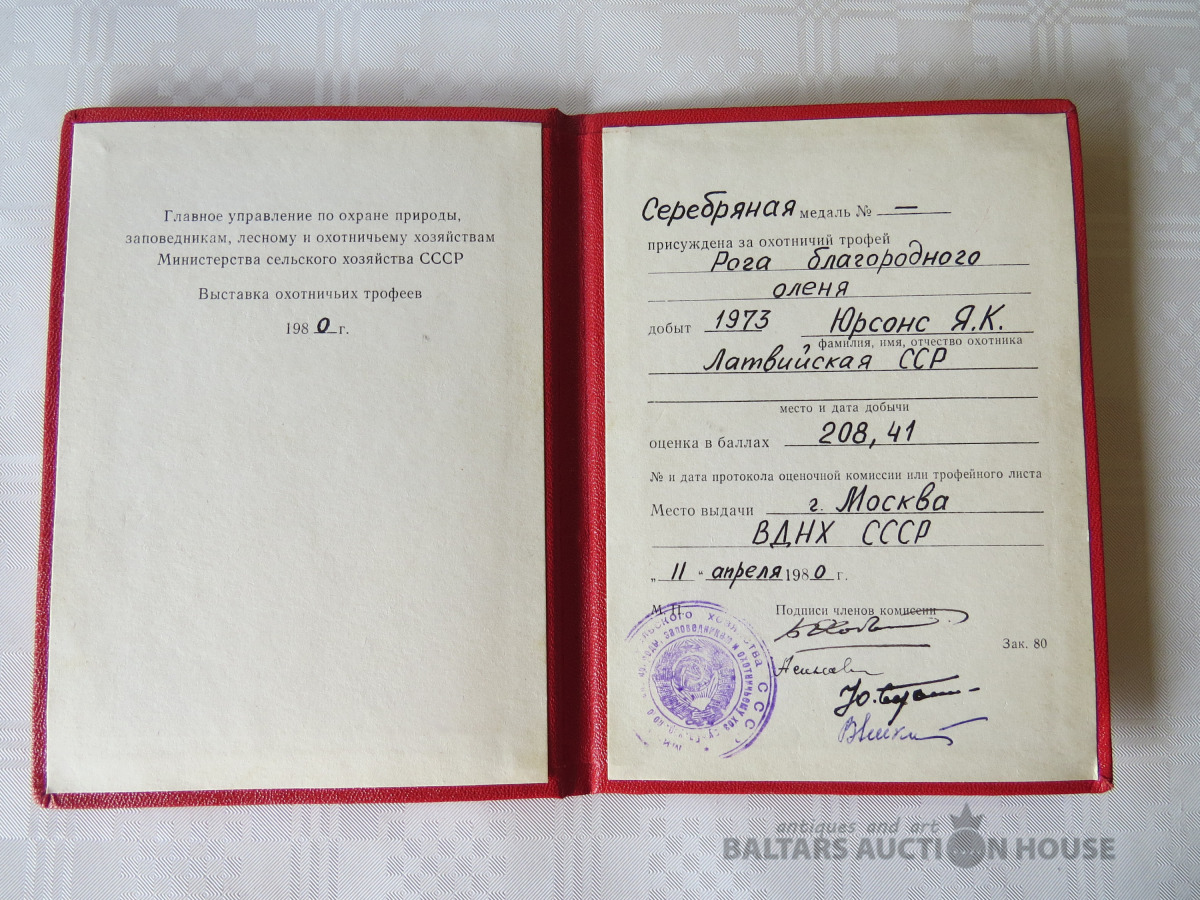 Главное управление по охране природы,
заповедникам, лесному и охотничьему хозяйствам
Министерства сельского хозяйства СССР
Выставка охотничьих трофеев
1980 г.
Серебряная медаль № —
присуждена за охотничий трофей
Рога благородного
оленя
добыт 1973 Юрсонс Я.К.
фамилия, имя, отчество охотника
Латвийская ССР
место и дата добычи
оценка в баллах 208,41
№ и дата протокола оценочной комиссии или трофейного листа
Место выдачи г. Москва
ВДНХ СССР
„11“ апреля 1980 г.
М. П. Подписи членов комиссии
Зак. 80
хозяйства СССР
заповедникам и охотничьему
antiques and art
BALTARS AUCTION HOUSE